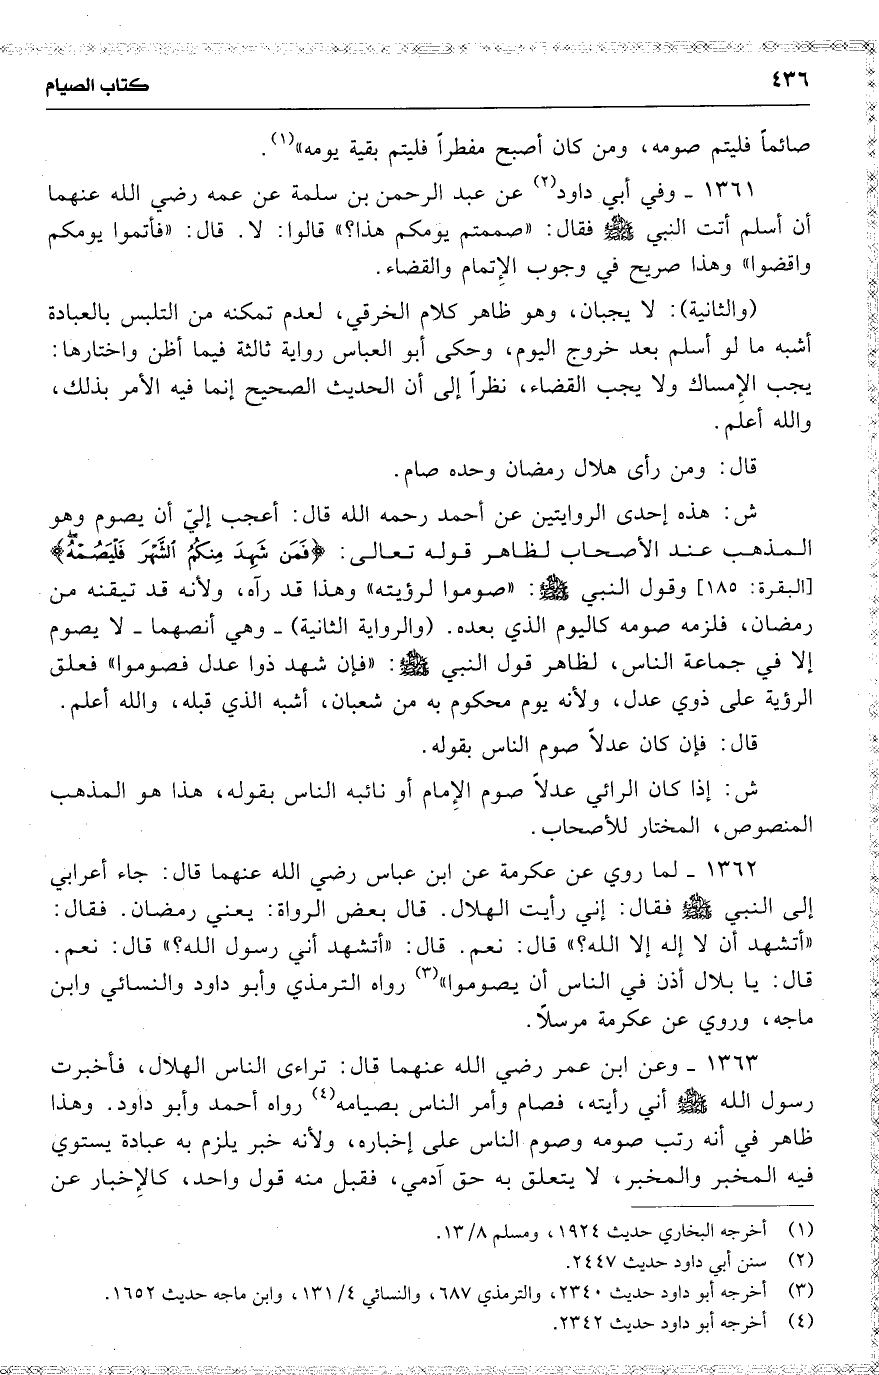 ٤٣٦
كتاب الصيام
صائماً فليتم صومه، ومن كان أصبح مفطراً فليتم بقية يومه»(١).
١٣٦١ ـ وفي أبي داود(٢) عن عبد الرحمن بن سلمة عن عمه رضي الله عنهما
أن أسلم أتت النبي ﷺ فقال: «صممتم يومكم هذا؟» قالوا: لا. قال: «فأتموا يومكم
واقضوا» وهذا صريح في وجوب الإتمام والقضاء.
(والثانية): لا يجبان، وهو ظاهر كلام الخرقي، لعدم تمكنه من التلبس بالعبادة
أشبه ما لو أسلم بعد خروج اليوم، وحكى أبو العباس رواية ثالثة فيما أظن واختارها:
يجب الإمساك ولا يجب القضاء، نظراً إلى أن الحديث الصحيح إنما فيه الأمر بذلك،
والله أعلم.
قال: ومن رأى هلال رمضان وحده صام.
ش: هذه إحدى الروايتين عن أحمد رحمه الله قال: أعجب إليّ أن يصوم وهو
المذهب عند الأصحاب لظاهر قوله تعالى: ﴿فَمَن شَهِدَ مِنكُمُ ٱلشَّهْرَ فَلْيَصُمْهُ﴾
[البقرة: ١٨٥] وقول النبي ﷺ: «صوموا لرؤيته» وهذا قد رآه، ولأنه قد تيقنه من
رمضان، فلزمه صومه كاليوم الذي بعده. (والرواية الثانية) ـ وهي أنصهما ـ لا يصوم
إلا في جماعة الناس، لظاهر قول النبي ﷺ: «فإن شهد ذوا عدل فصوموا» فعلق
الرؤية على ذوي عدل، ولأنه يوم محكوم به من شعبان، أشبه الذي قبله، والله أعلم.
قال: فإن كان عدلاً صوم الناس بقوله.
ش: إذا كان الرائي عدلاً صوم الإمام أو نائبه الناس بقوله، هذا هو المذهب
المنصوص، المختار للأصحاب.
١٣٦٢ ـ لما روي عن عكرمة عن ابن عباس رضي الله عنهما قال: جاء أعرابي
إلى النبي ﷺ فقال: إني رأيت الهلال. قال بعض الرواة: يعني رمضان. فقال:
«أتشهد أن لا إله إلا الله؟» قال: نعم. قال: «أتشهد أني رسول الله؟» قال: نعم.
قال: يا بلال أذن في الناس أن يصوموا»(٣) رواه الترمذي وأبو داود والنسائي وابن
ماجه، وروي عن عكرمة مرسلاً.
١٣٦٣ ـ وعن ابن عمر رضي الله عنهما قال: تراءى الناس الهلال، فأخبرت
رسول الله ﷺ أني رأيته، فصام وأمر الناس بصيامه(٤) رواه أحمد وأبو داود. وهذا
ظاهر في أنه رتب صومه وصوم الناس على إخباره، ولأنه خبر يلزم به عبادة يستوي
فيه المخبر والمخبر، لا يتعلق به حق آدمي، فقبل منه قول واحد، كالإخبار عن
(١) أخرجه البخاري حديث ١٩٢٤، ومسلم ١٣/٨.
(٢) سنن أبي داود حديث ٢٤٤٧.
(٣) أخرجه أبو داود حديث ٢٣٤٠، والترمذي ٦٨٧، والنسائي ١٣١/٤، وابن ماجه حديث ١٦٥٢.
(٤) أخرجه أبو داود حديث ٢٣٤٢.